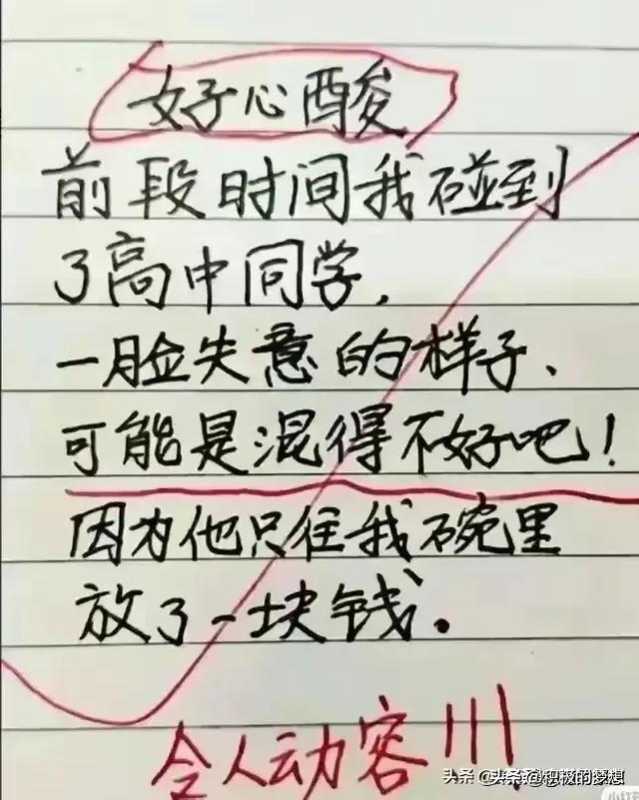 好心酸
前段时间我碰到
了高中同学.
一脸失意的样子、
可能是混得不好吧!
因为他只往我碗里
放了一块钱.
令人动容!!!
头条 @积极的梦想
小红书